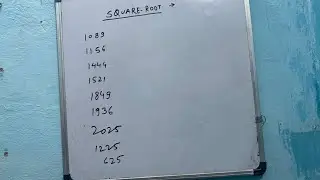 SQUARE-ROOT →
1089
1156
1444
1521
1849
1936
2025
1225
625